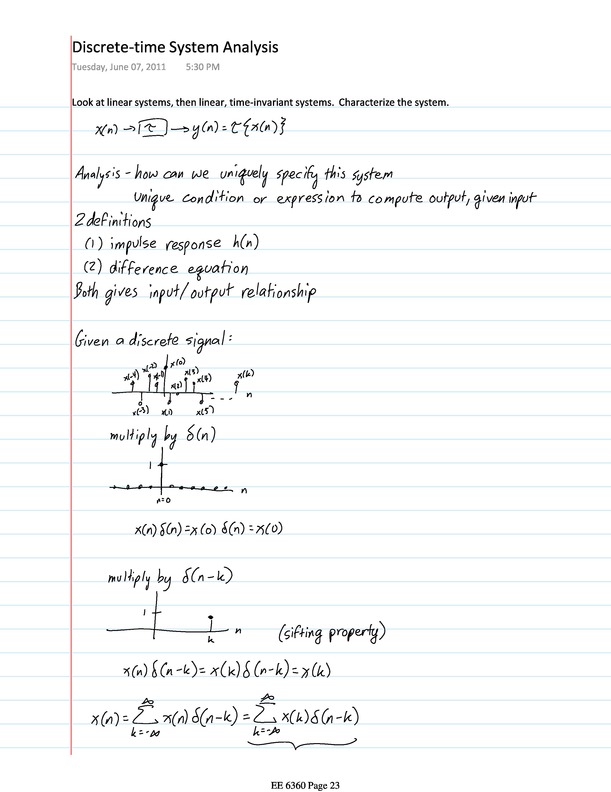 Discrete-time System Analysis
Tuesday, June 07, 2011 5:30 PM
Look at linear systems, then linear, time-invariant systems. Characterize the system.
x(n) → [τ] → y(n) = τ{x(n)}
Analysis - how can we uniquely specify this system
unique condition or expression to compute output, given input
2 definitions
(1) impulse response h(n)
(2) difference equation
Both gives input/output relationship
Given a discrete signal:
x(-4) x(-2) x(-1) x(0) x(2) x(3) x(4) x(k)
n
x(-3) x(1) x(5)
multiply by δ(n)
1
n
n=0
x(n) δ(n) = x(0) δ(n) = x(0)
multiply by δ(n-k)
1
n
k
(sifting property)
x(n) δ(n-k) = x(k) δ(n-k) = x(k)
x(n) = ∑_{k=-∞}^{∞} x(n) δ(n-k) = ∑_{k=-∞}^{∞} x(k) δ(n-k)
EE 6360 Page 23